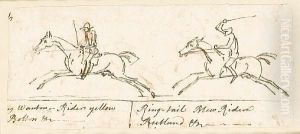 by Wanton — Rider yellow
Bolton &c —
Ring-tail Blew Rider
Rutland &c —